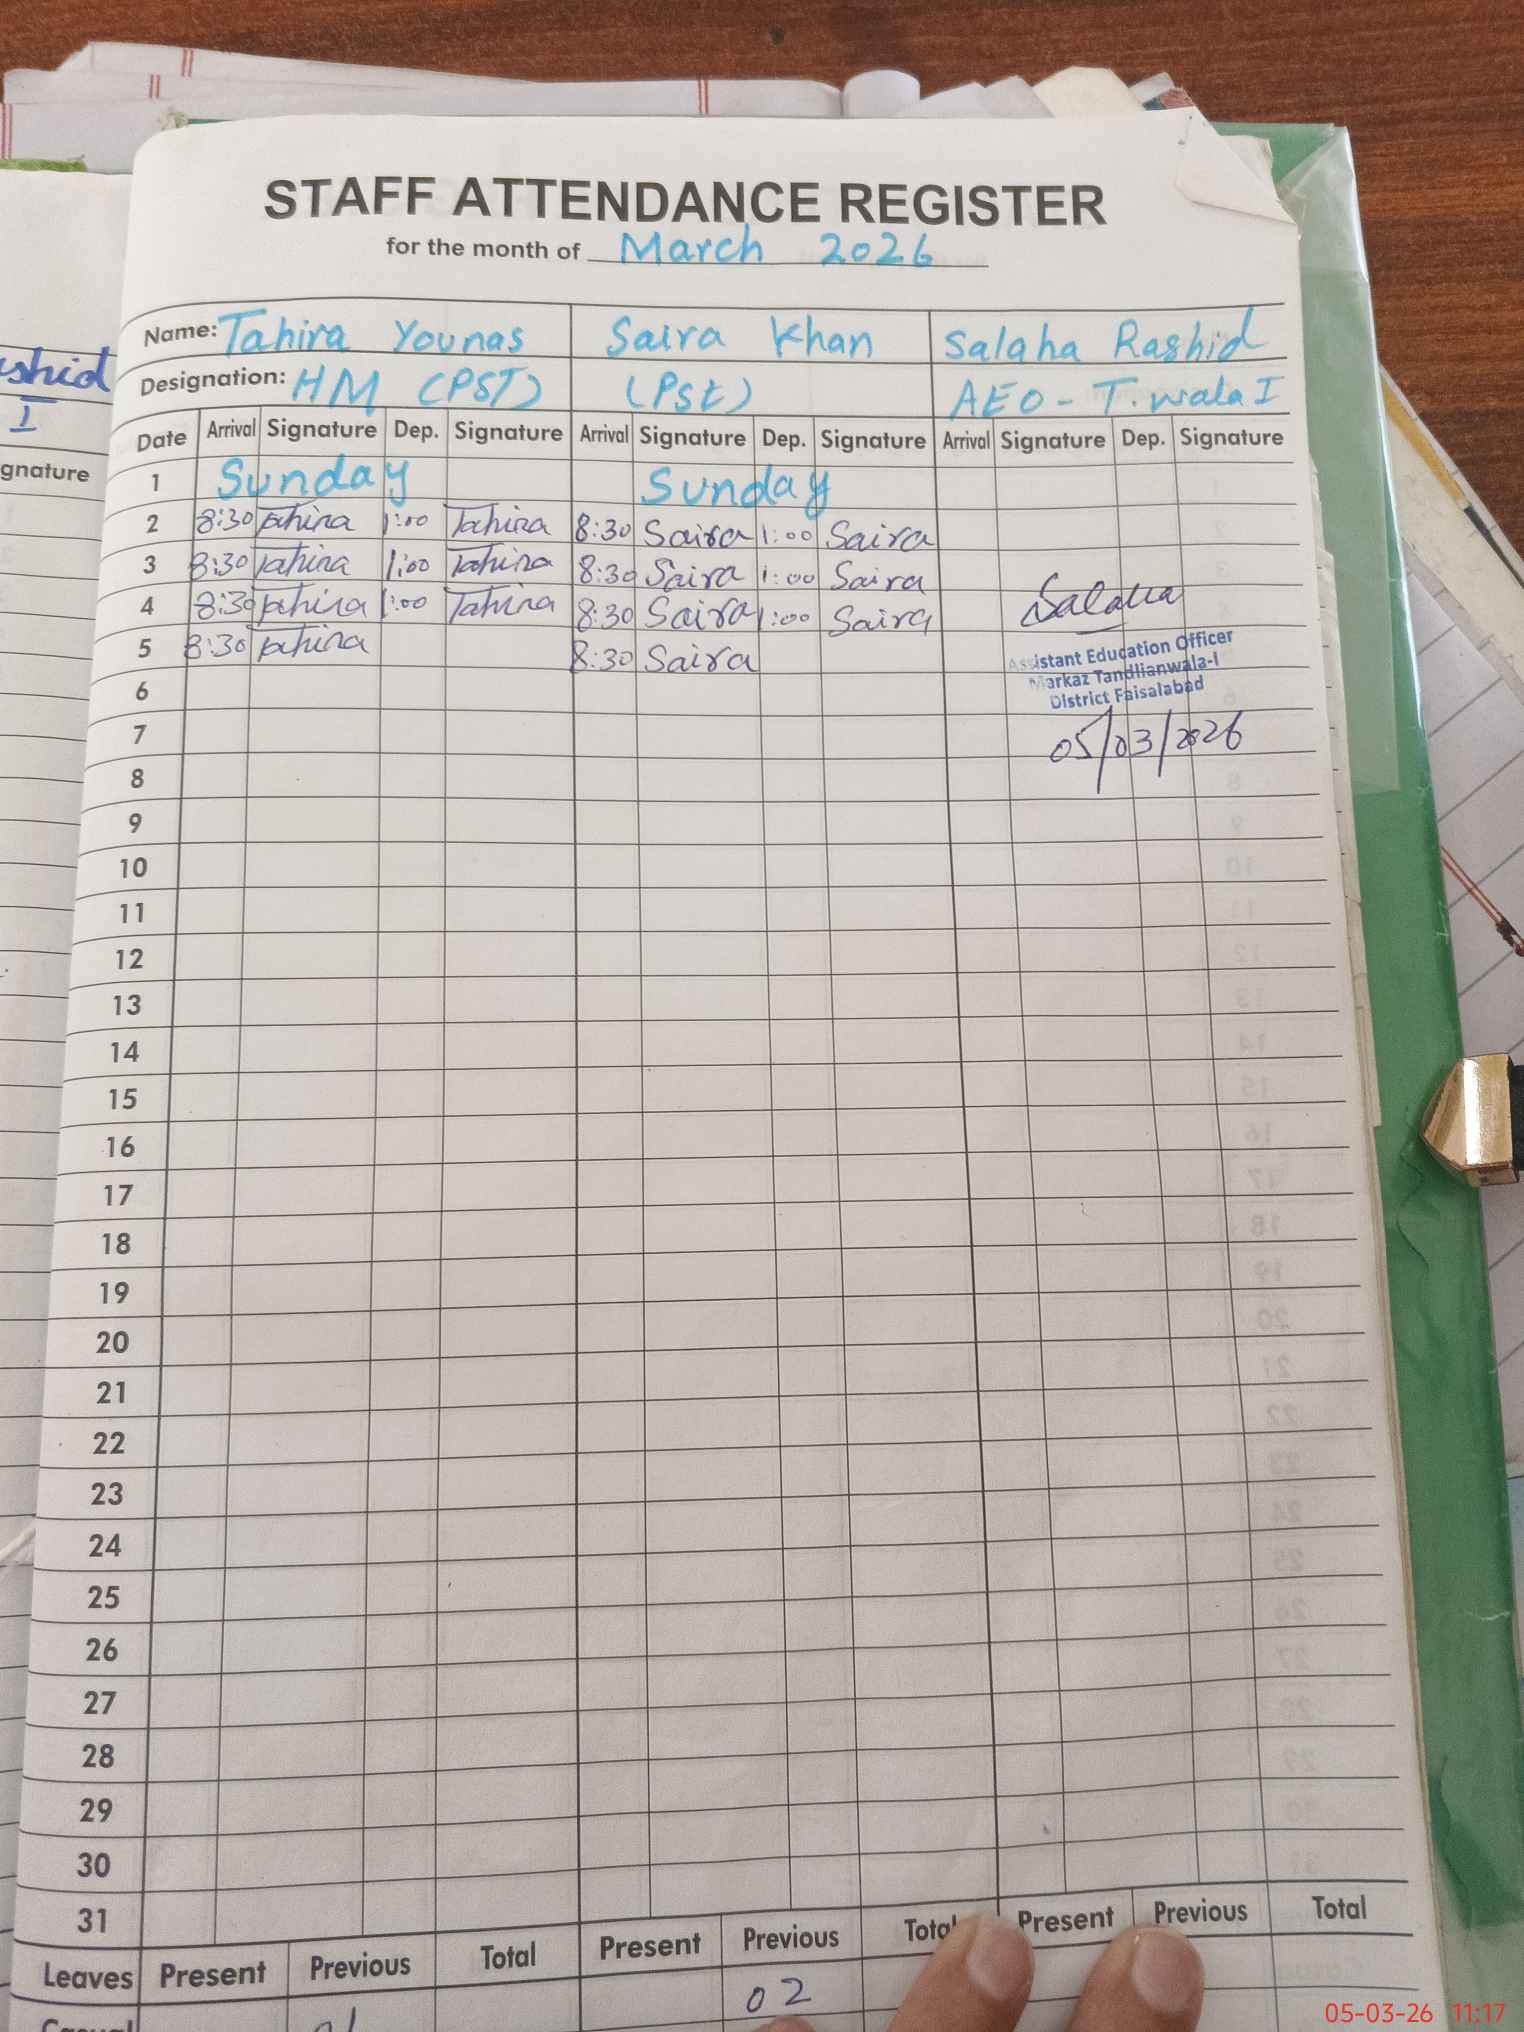 STAFF ATTENDANCE REGISTER
for the month of March 2026
Name: Tahira Younas Saira Khan Salaha Rashid
Designation: HM (PST) (PSt) AEO - T.wala I
Date Arrival Signature Dep. Signature Arrival Signature Dep. Signature Arrival Signature Dep. Signature
1 Sunday Sunday
2 8:30 Tahira 1:00 Tahira 8:30 Saira 1:00 Saira
3 8:30 Tahira 1:00 Tahira 8:30 Saira 1:00 Saira
4 8:30 Tahira 1:00 Tahira 8:30 Saira 1:00 Saira
Salaha
5 8:30 Tahira 8:30 Saira
Assistant Education Officer
Markaz Tandlianwala-I
District Faisalabad
6
7
05/03/2026
8
9
10
11
12
13
14
15
16
17
18
19
20
21
22
23
24
25
26
27
28
29
30
31
Leaves Present Previous Total Present Previous Total Present Previous Total
02
shid
I
gnature
05-03-26 11:17